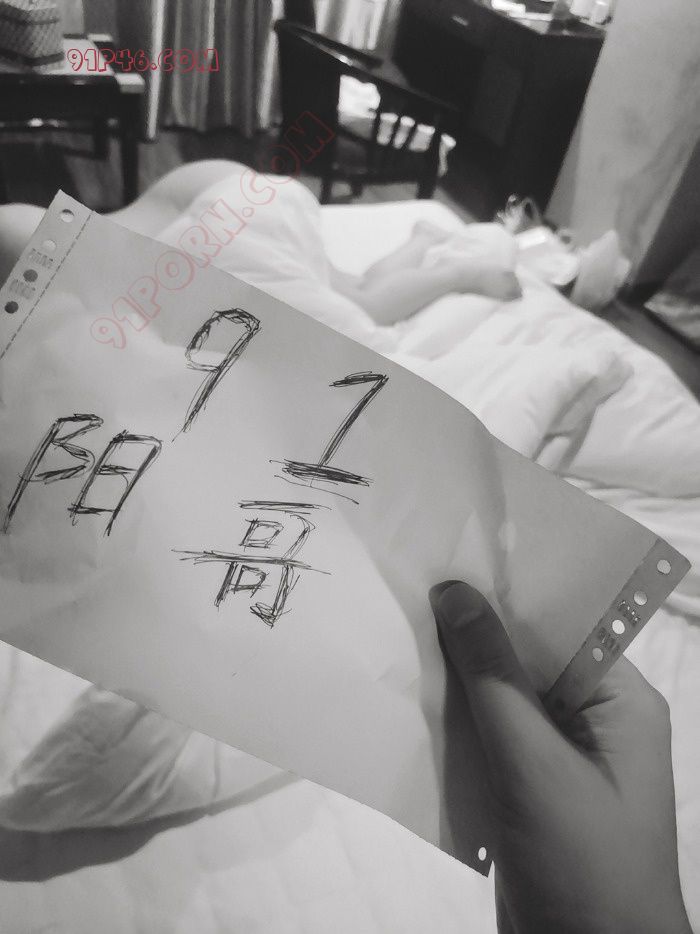 91P46.COM
91PORN.COM
91
阳哥